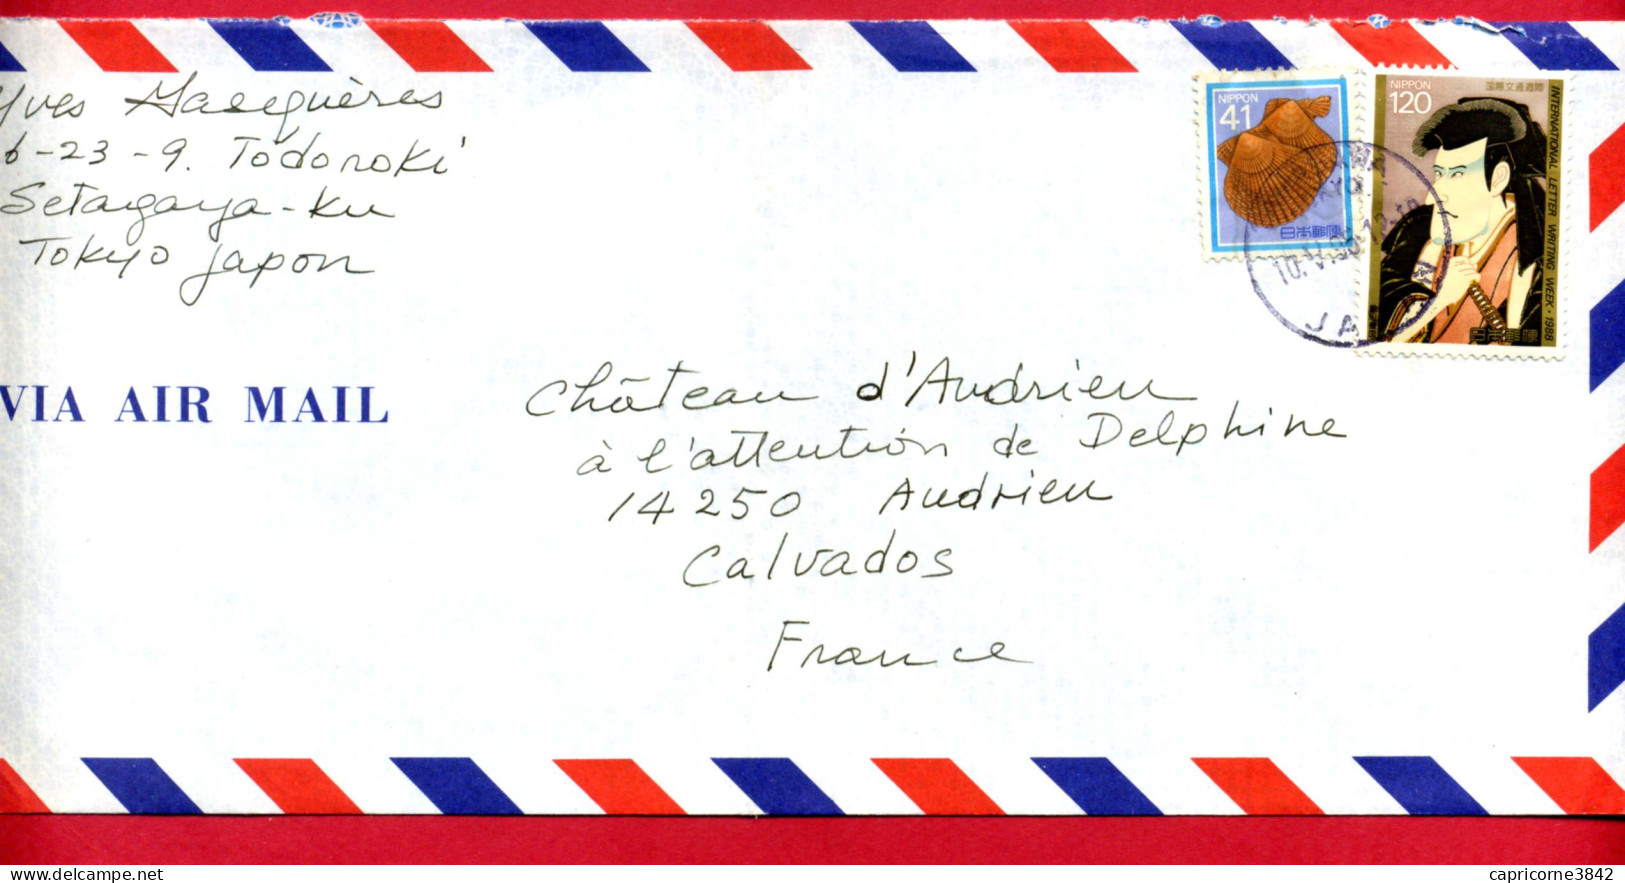 Yves
6-23-9. Todoroki
Setagaya-Ku
Tokyo Japon
VIA AIR MAIL
NIPPON
41
日本郵便
NIPPON
120
国際文通週間
INTERNATIONAL LETTER WRITING WEEK・1988
日本郵便
JA
Château d'Audrieu
à l'attention de Delphine
14250 Audrieu
Calvados
France
delcampe.net
capricorne3842